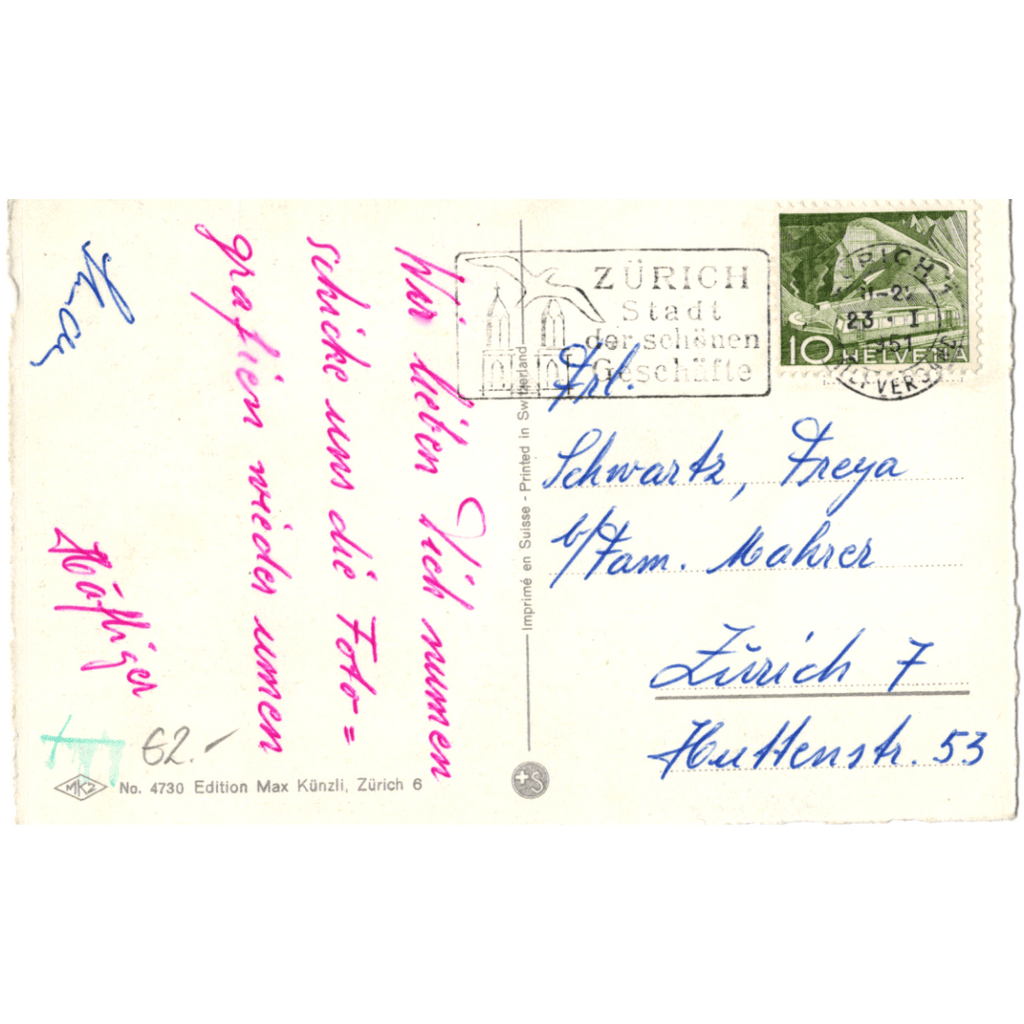 Wir lieben Dich
schicke uns die Foto=
grafien wieder
Häfliger
62.-
MKZ
No. 4730 Edition Max Künzli, Zürich 6
Imprimé en Suisse - Printed in Switzerland
ZÜRICH
Stadt
der schönen
Geschäfte
10 HELVETIA
23. I
Frl.
Schwartz, Freya
b/Fam. Mahrer
Zürich 7
Huttenstr. 53